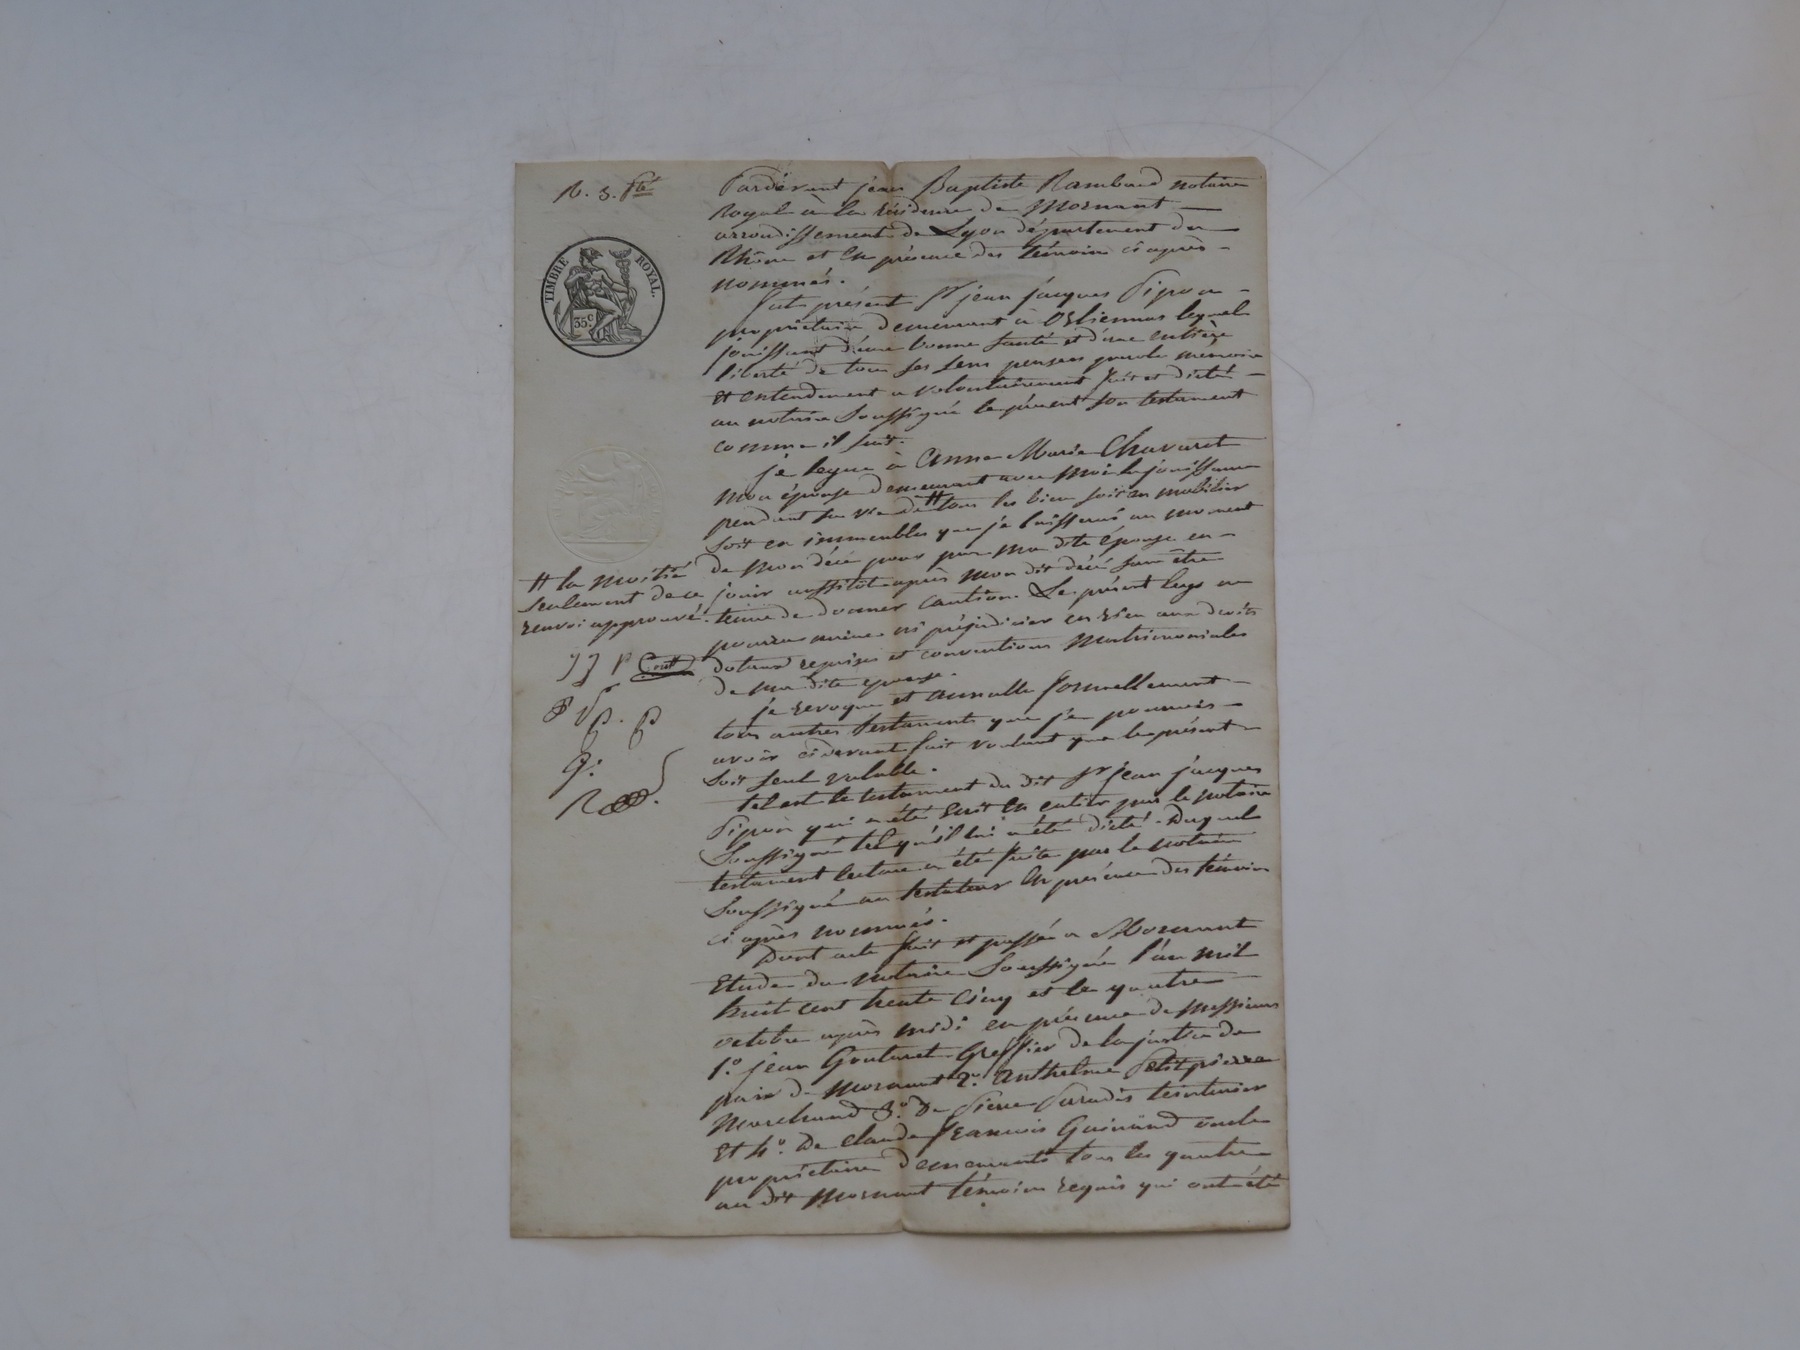 R. 3. Pte
TIMBRE ROYAL.
35c
Pardevant jean Baptiste Rambaud notaire
Royal à la résidence de Mornant
arrondissement de Lyon département du
Rhône et en présence des témoins ci après
nommés.
fut présent Sr jean jacques Pipon
propriétaire demeurant à Orliennas lequel
jouissant d'une bonne santé et d'une entière
liberté de tous ses sens pensées parole memoire
et entendement a volontairement fait et dicté
au notaire soussigné le présent son testament
comme il suit.
je legue à Anne Marie Chavaret
mon épouse demeurant avec moi la jouissance
pendant sa vie de # tous les bien soit en mobilier
soit en immeubles que je laisserai au moment
de mon décé pour par ma dite épouse en
jouir aussitot après mon dit décé sans être
tenue de donner caution. Le présent legs ne
pourra nuire ni préjudicier en rien aux droits
dotaux reprises et conventions matrimoniales
de ma dite epouse.
# la moitié
seulement de ce
renvoi approuvé.
j j P
je revoque et annulle formellement
tous autres testaments que je pourrais
avoir cidevant fait voulant que le présent
soit seul valable.
tel est le testament du dit Sr jean jacques
Pipon qui a été écrit en entier par le notaire
soussigné tel qu'il lui a été dicté. Duquel
testament lecture a été faite par le notaire
soussigné au testateur en présence des témoins
ci après nommés.
Dont acte fait et passé a Mornant
Etude du notaire soussigné l'an mil
huit cent trente cinq et le quatre
octobre après midi en présence de messieurs
1.o jean Goutaret Greffier de la justice de
paix de Mornant 2.o Anthelme Petitpierre
marchand 3.o De Pierre Paradis teinturier
Et 4.o De claude françois Guinand oncle
propriétaire demeurants tous les quatre
au dit Mornant témoins requis qui ont été